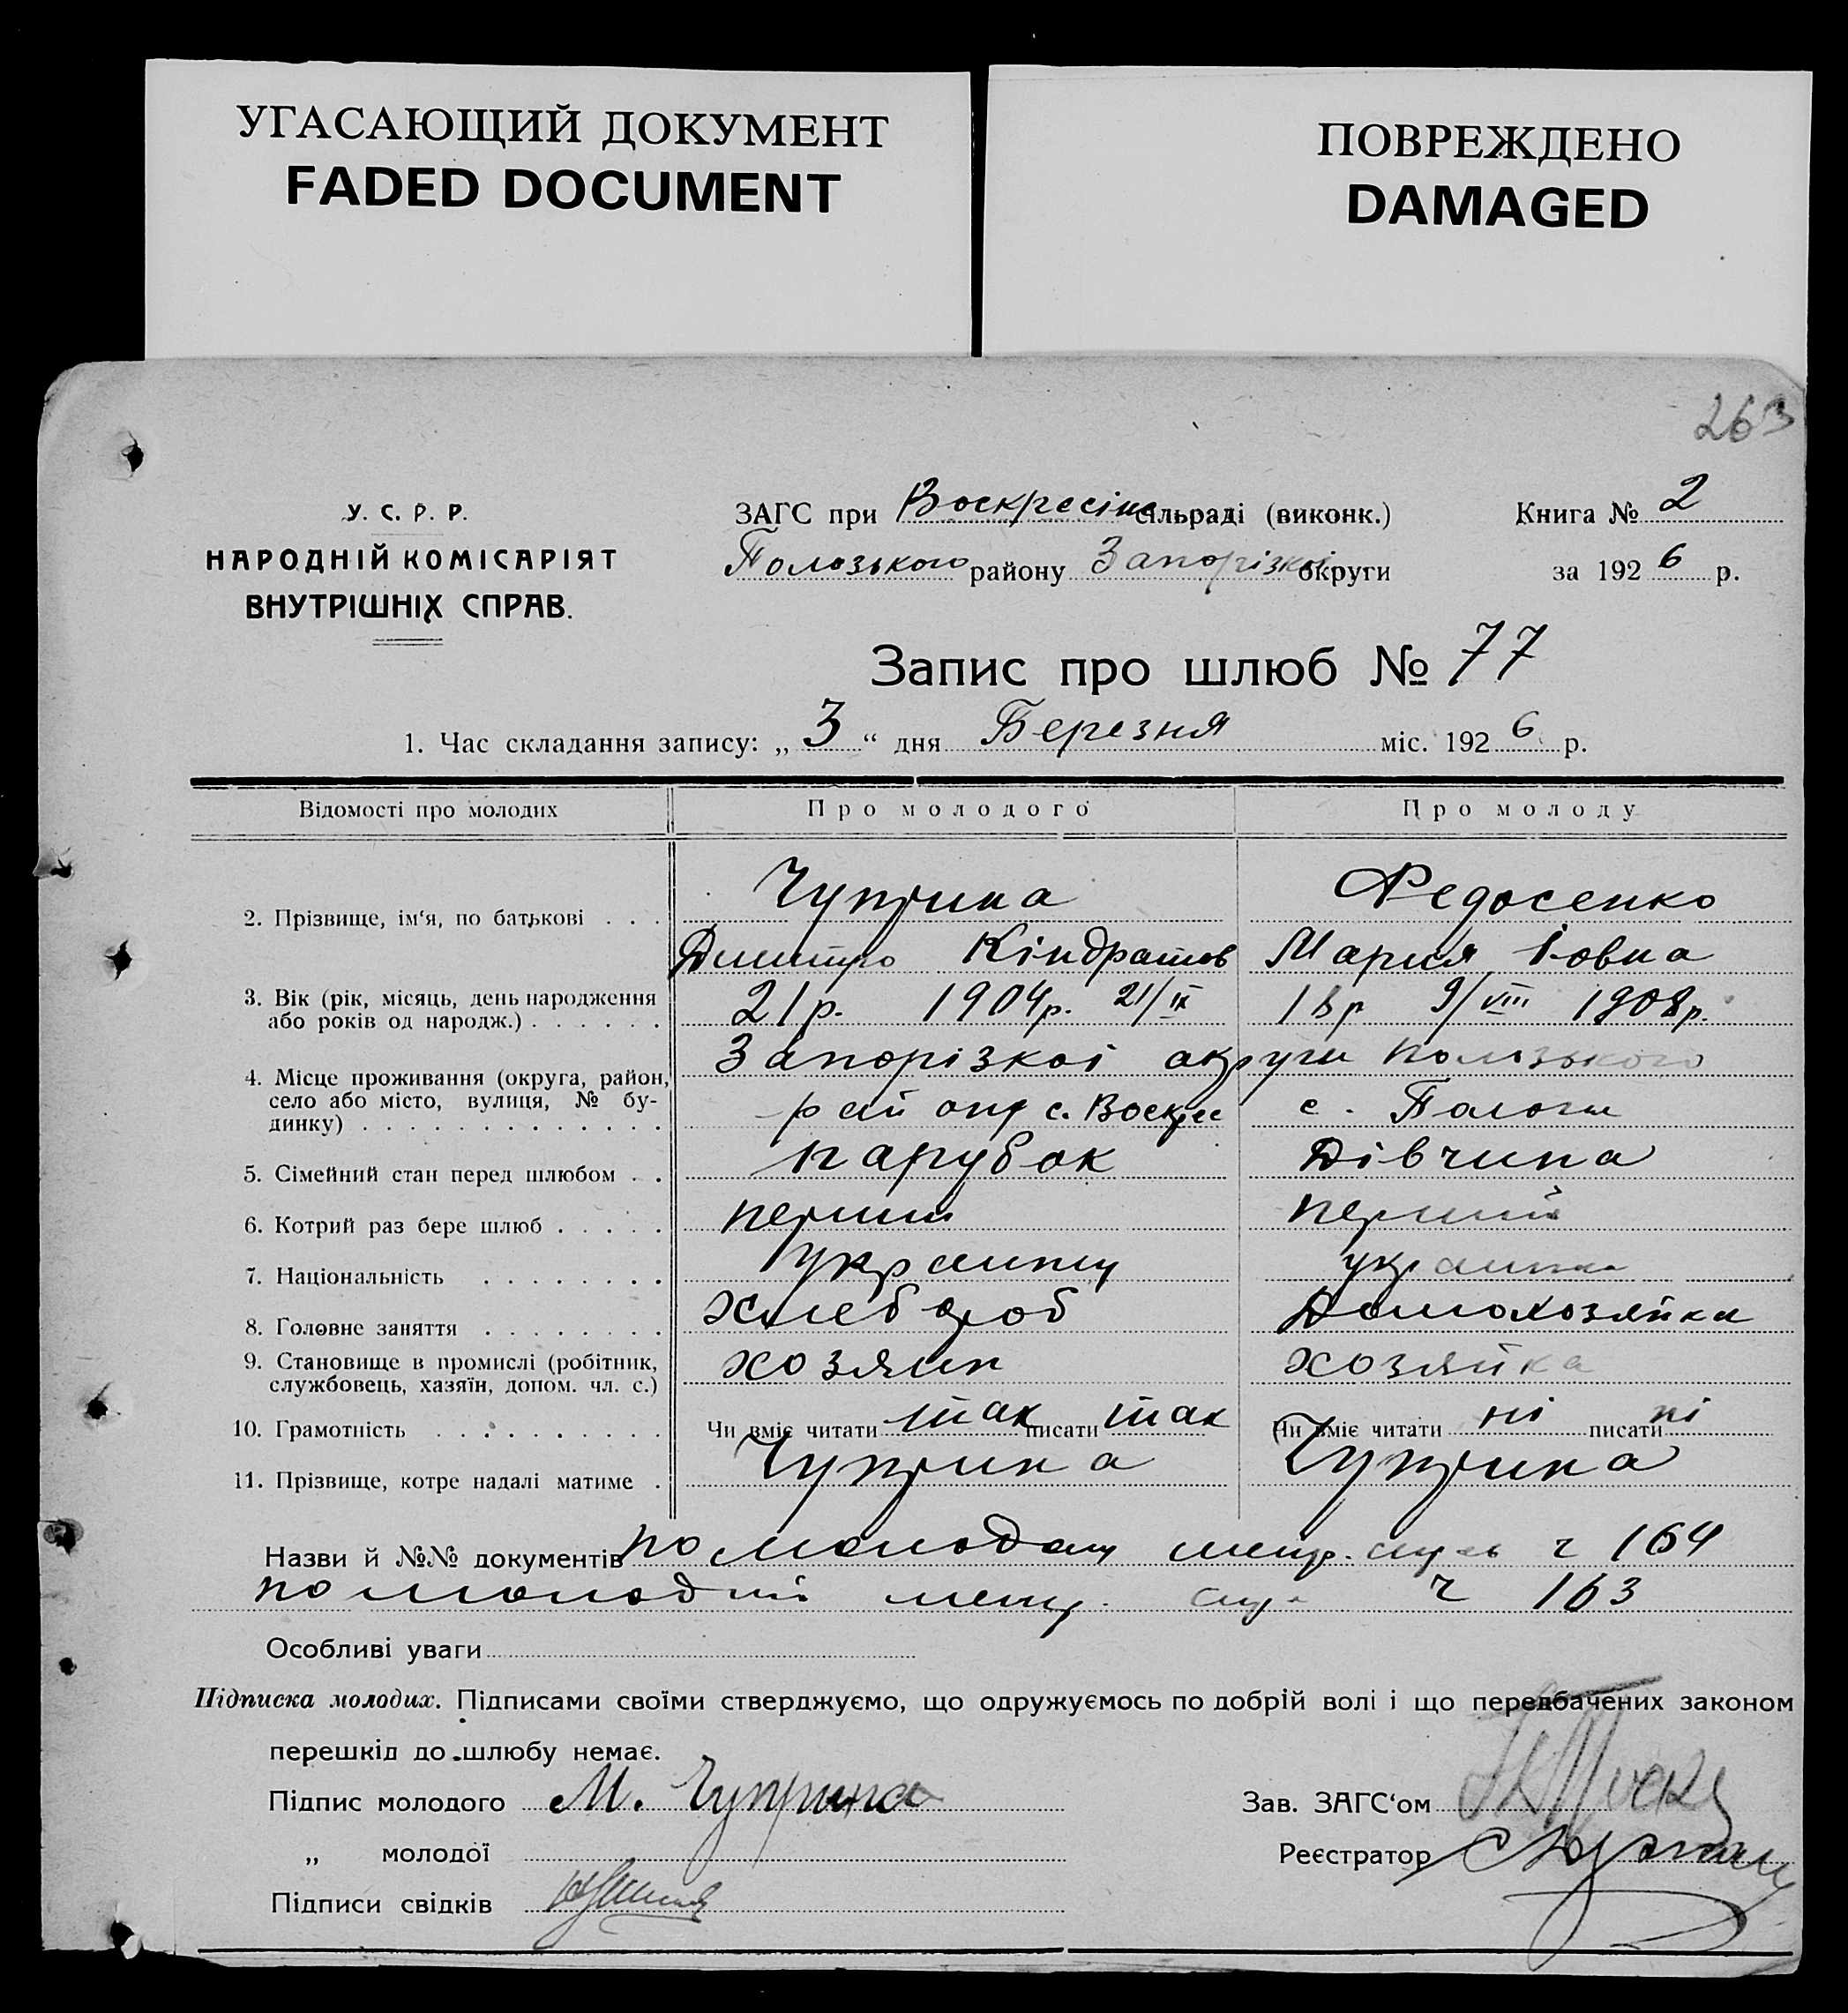 УГАСАЮЩИЙ ДОКУМЕНТ
FADED DOCUMENT
ПОВРЕЖДЕНО
DAMAGED
263
У. С. Р. Р.
НАРОДНІЙ КОМІСАРІЯТ
ВНУТРІШНІХ СПРАВ.
ЗАГС при Воскресінс сільраді (виконк.)
Полозького району Запорізкоі округи
Книга № 2
за 1926 р.
Запис про шлюб № 77
1. Час складання запису: „ 3 “ дня Березня міс. 1926 р.
Відомості про молодих Про молодого Про молоду
2. Прізвище, ім‘я, по батькові . . . Чуприна Федосенко
Дмитро Кіндратов Мария Іовна
3. Вік (рік, місяць, день народження
або років од народж.) . . . . . . 21 р. 1904р. 21/IX 18р 9/VIII 1908р.
4. Місце проживання (округа, район,
село або місто, вулиця, № бу-
динку) . . . . . . . . . . . . . .
Запорізкоі округи Полозького
с. Воскрес с. Пологи
5. Сімейний стан перед шлюбом . . парубок Дівчина
6. Котрий раз бере шлюб . . . . . перший перший
7. Національність . . . . . . . . украинц украинка
8. Головне заняття . . . . . . . . хлебороб Домохозяйка
9. Становище в промислі (робітник,
службовець, хазяїн, допом. чл. с.) хозяин хозяйка
10. Грамотність . . . . . . . . . . Чи вміє читати так писати так Чи вміє читати ні писати ні
11. Прізвище, котре надалі матиме . Чуприна Чуприна
Назви й №№ документів по молодому метр. ч 164
по молодій метр. ч 163
Особливі уваги
Підписка молодих. Підписами своїми стверджуємо, що одружуємось по добрій волі і що передбачених законом
перешкід до шлюбу немає.
Підпис молодого М. Чуприна
„ молодої
Підписи свідків
Зав. ЗАГС‘ом
Реєстратор